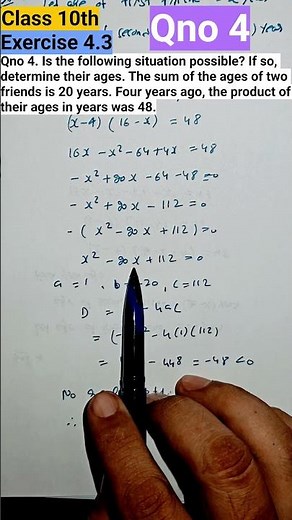 Class 10th
Exercise 4.3
Qno 4
Qno 4. Is the following situation possible? If so,
determine their ages. The sum of the ages of two
friends is 20 years. Four years ago, the product of
their ages in years was 48.
(x-4) (16-x) = 48
16x - x² - 64 + 4x = 48
- x² + 20x - 64 - 48 = 0
- x² + 20x - 112 = 0
- ( x² - 20x + 112 ) = 0
x² - 20x + 112 = 0
a = 1 , b = -20 , c = 112
D = - 4ac
= (- ² - 4(1)(112)
= - 448 = -48 < 0
No
∴